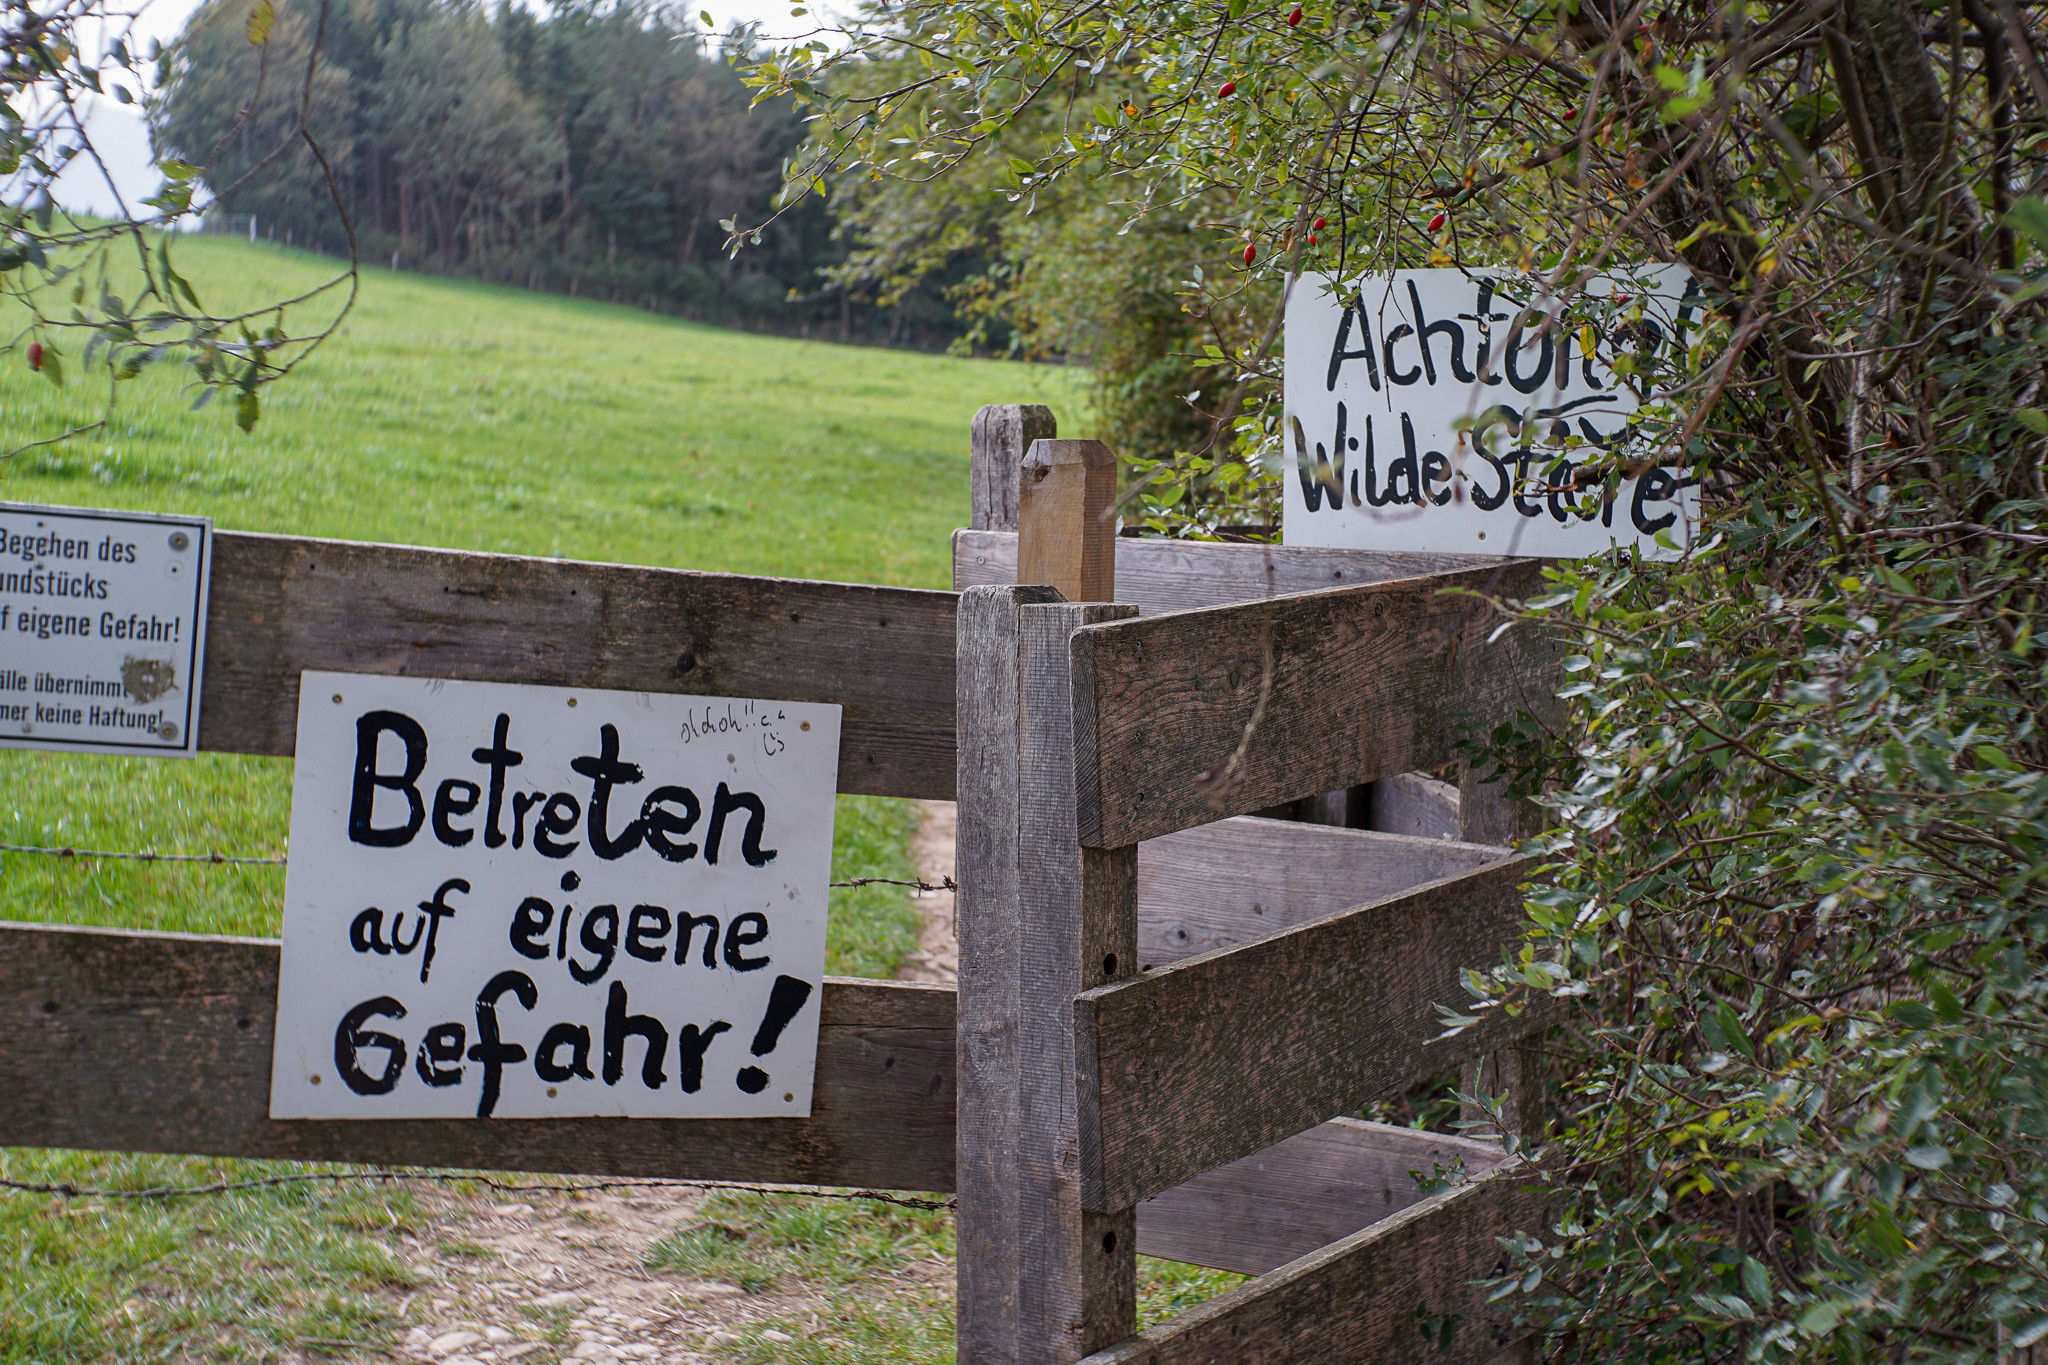 Begehen des
undstücks
f eigene Gefahr!
älle übernimmt
mer keine Haftung!
Betreten
auf eigene
Gefahr!
Achtung!
Wilde Stiere